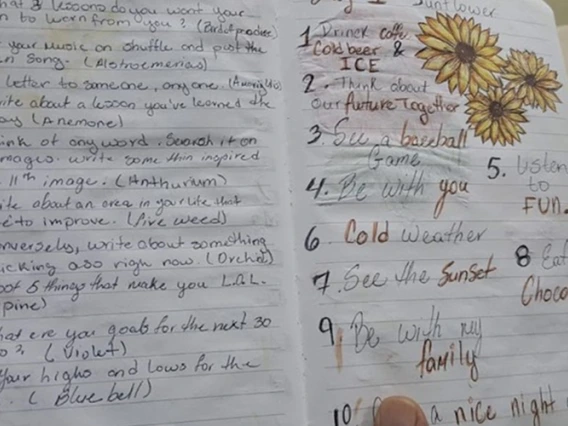 hat 3 lessons do you want your
n to learn from you?
your music on shuffle and post the
n song. (Alstroemerias)
letter to someone, anyone.
ite about a lesson you've learned the
(Anemone)
ink of any word. Search it on
mages. write something inspired
11th image. (Anthurium)
ite about an area in your life that
to improve. (Fire weed)
nversely, write about something
icking ass right now. (Orchid)
5 things that make you L.O.L.
pine)
hat are you goals for the next 30
(Violet)
Your highs and lows for the
(Blue bell)
Sunflower
1. Drinck coffe
Cold beer &
ICE
2. Think about
our future Together
3. See a baseball
Game
4. Be with you
5. Listen
to
FUN.
6 Cold Weather
7. See the Sunset
8 Eat
Choco
9. Be with my
family
10 a nice night